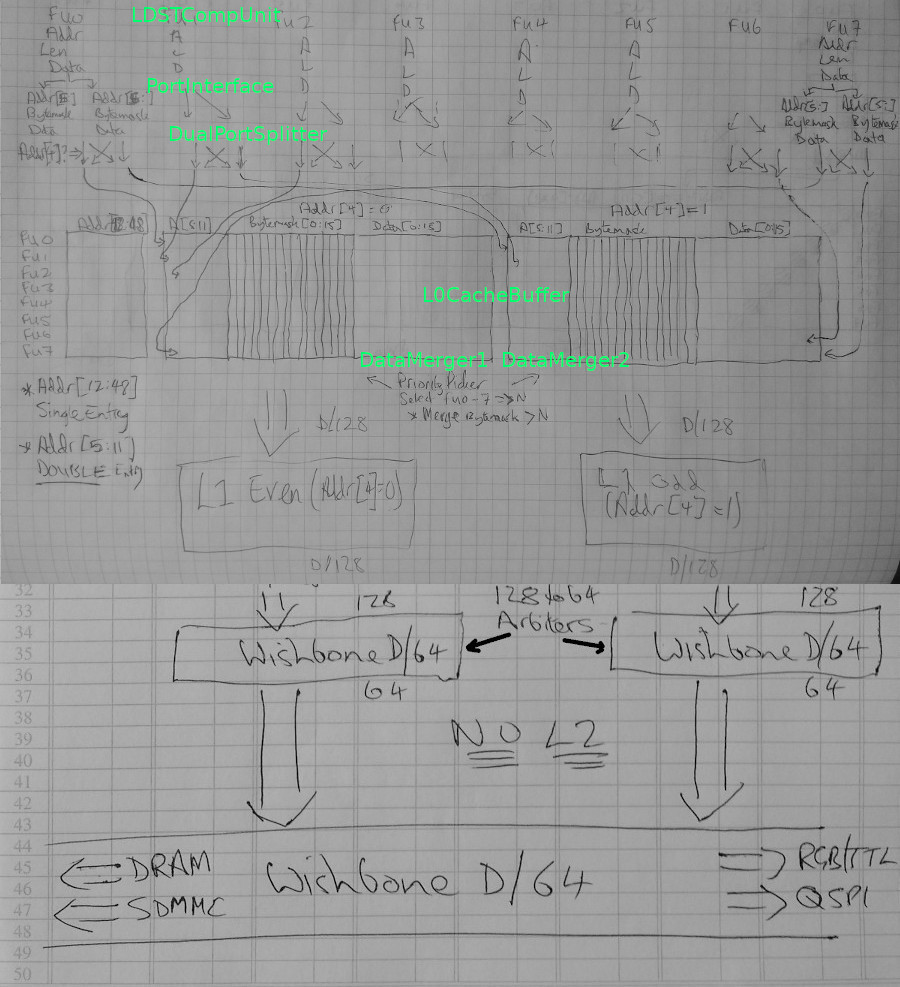 FU0 LDSTCompUnit FU2 FU3 FU4 FU5 FU6 FU7
Addr A A A A A Addr
Len L L L L L Len
Data D D D D D Data
PortInterface
Addr[5:] Addr[5:] Addr[5:] Addr[5:]
Bytemask Bytemask Bytemask Bytemask
Data Data Data Data
DualPortSplitter
Addr[4]?⇒
Addr[4]=0 Addr[4]=1
Addr[12:48] A[5:11] Bytemask[0:15] Data[0:15] A[5:11] Bytemask Data[0:15]
FU0
FU1
FU2
FU3
FU4
FU5
FU6
FU7
L0CacheBuffer
DataMerger1 DataMerger2
Priority Picker
Select FU0-7 => N
* Merge Bytemask > N
* Addr[12:48]
Single Entry
* Addr[5:11]
DOUBLE Entry
D/128 D/128
L1 Even (Addr[4]=0) L1 odd
(Addr[4]=1)
D/128 D/128
32
33
34
35
36
37
38
39
40
41
42
43
44
45
46
47
48
49
50
128 128 to 64 128
Arbiters
Wishbone D/64 Wishbone D/64
64 64
NO L2
DRAM Wishbone D/64 RGB/TTL
SDMMC QSPI